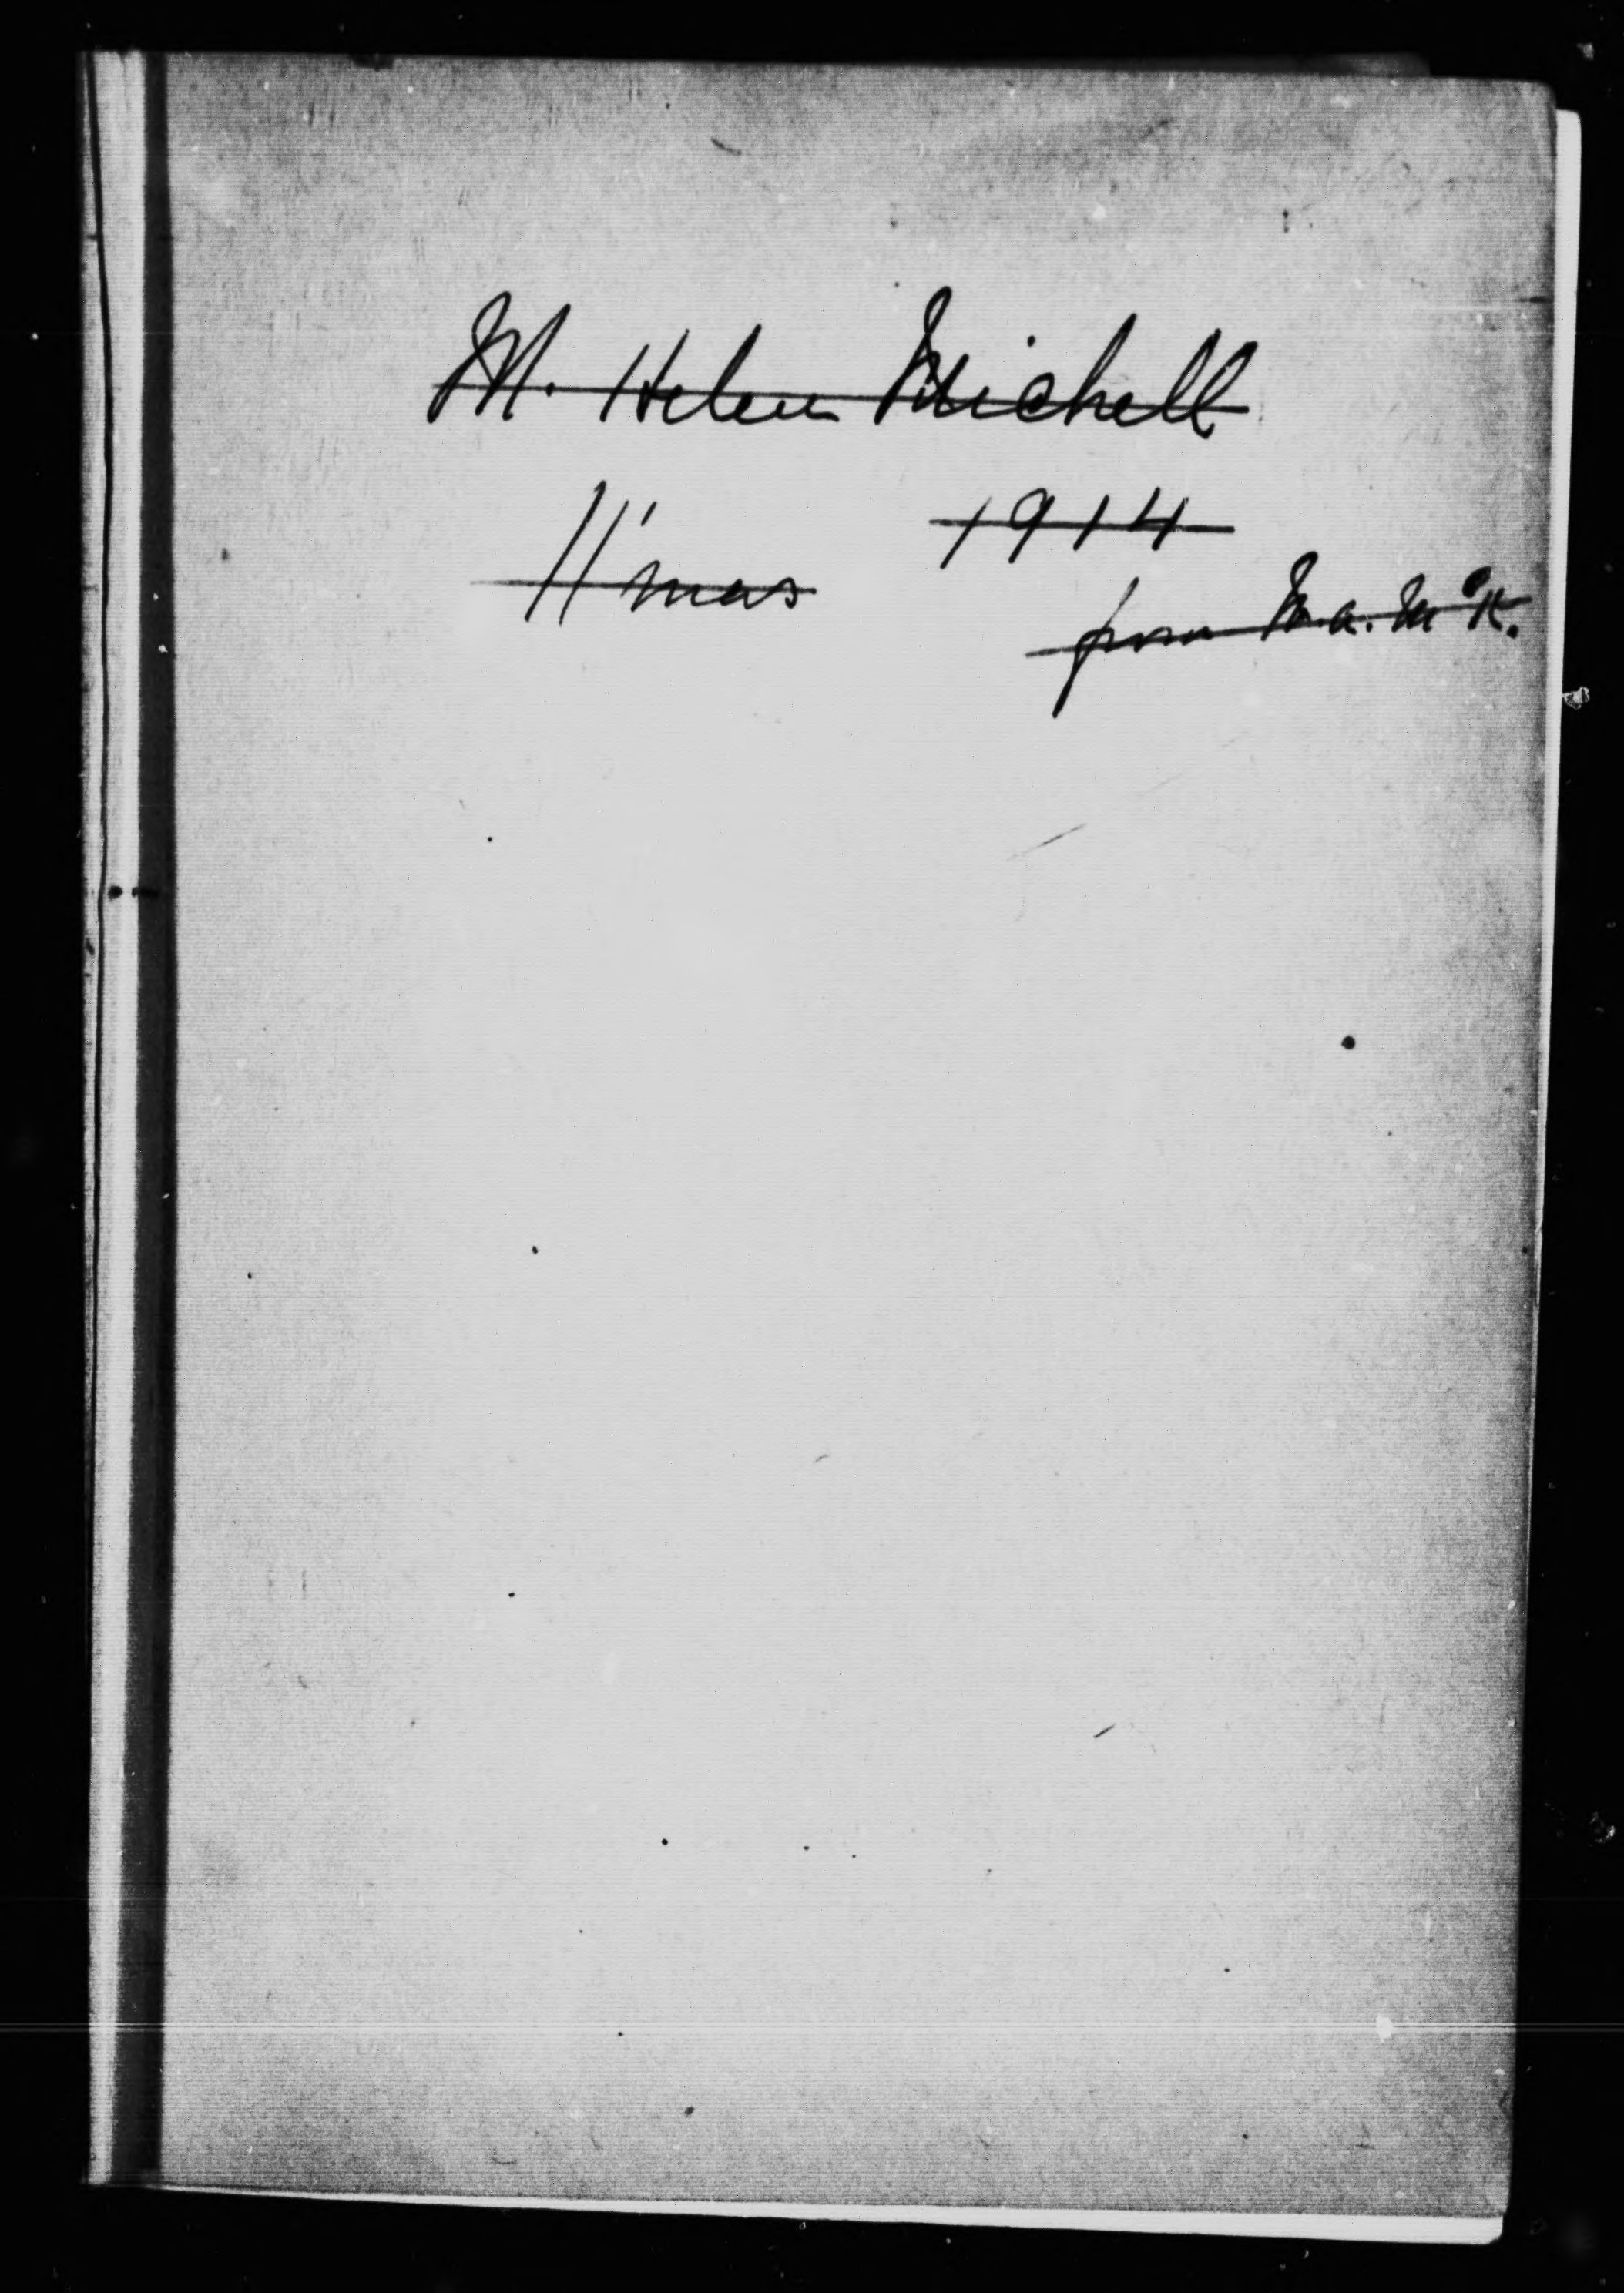 M. Helen Michell
X'mas 1914
from M.A. McK.